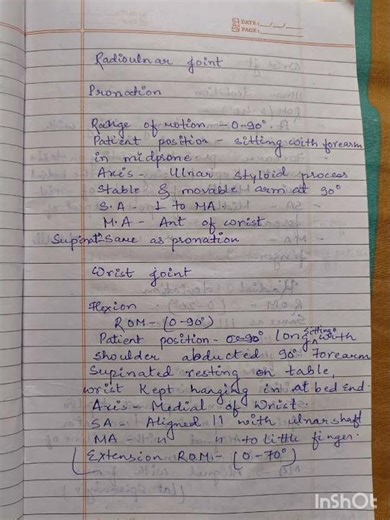 DATE: __/__/__
PAGE:
Radioulnar Joint
Pronation
Range of motion - 0-90°
Patient position - sitting with forearm
in midprone
Axis - Ulnar styloid process
Stable & movable arm at 90°
S.A - ⊥ to MA
M.A - Ant of wrist
Supinat- Same as pronation
Wrist Joint
Flexion
ROM - (0-90°)
Patient position - sitting with
shoulder abducted 90° forearm
Supinated resting on table,
wrist kept hanging in at bed end.
Axis - Medial of Wrist.
SA - Aligned 11 with ulnar shaft
MA - " " to little finger.
(Extension ROM:- (0-70°)
InShOt